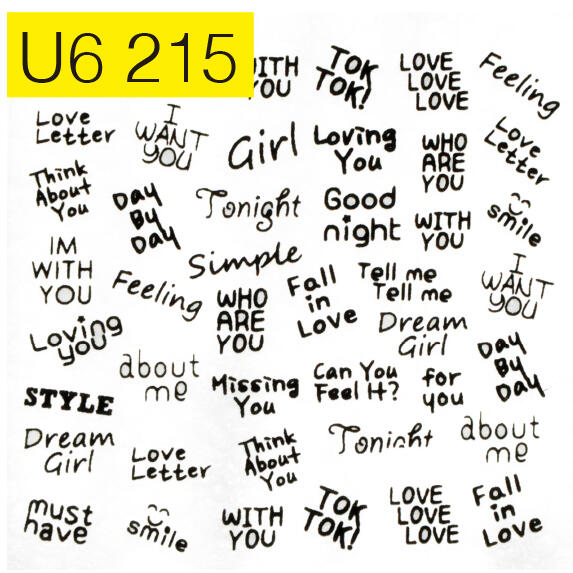 U6 215
WITH
YOU
TOK
TOK!
LOVE
LOVE
LOVE
Feeling
Love
Letter
I
WANT
YOU
Girl
Loving
You
WHO
ARE
YOU
Love
Letter
Think
About
You
Day
By
Day
Tonight
Good
night
WITH
YOU
smile
IM
WITH
YOU
Feeling
Simple
WHO
ARE
YOU
Fall
in
Love
Tell me
Tell me
I
WANT
YOU
Loving
you
about
me
Dream
Girl
Day
By
Day
STYLE
Missing
You
Can You
Feel It?
for
you
Dream
Girl
Love
Letter
Think
About
You
Tonight
about
me
must
have
smile
WITH
YOU
TOK
TOK!
LOVE
LOVE
LOVE
Fall
in
Love